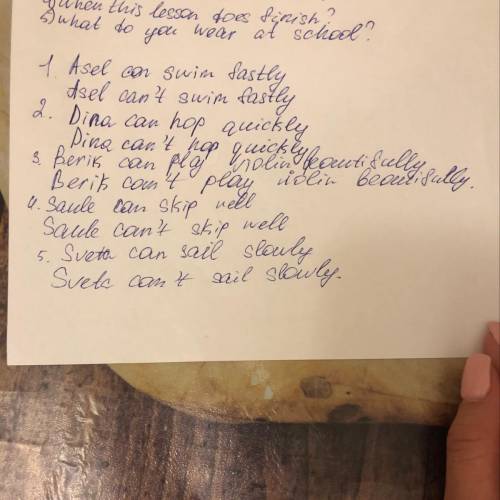 4) When this lesson does finish?
5) what do you wear at school?
1. Asel can swim fastly
Asel can't swim fastly
2. Dina can hop quickly
Dina can't hop quickly
3. Berik can play violin beautifully
Berik can't play violin beautifully.
4. Saule can skip well
Saule can't skip well
5. Sveta can sail slowly
Sveta can't sail slowly.